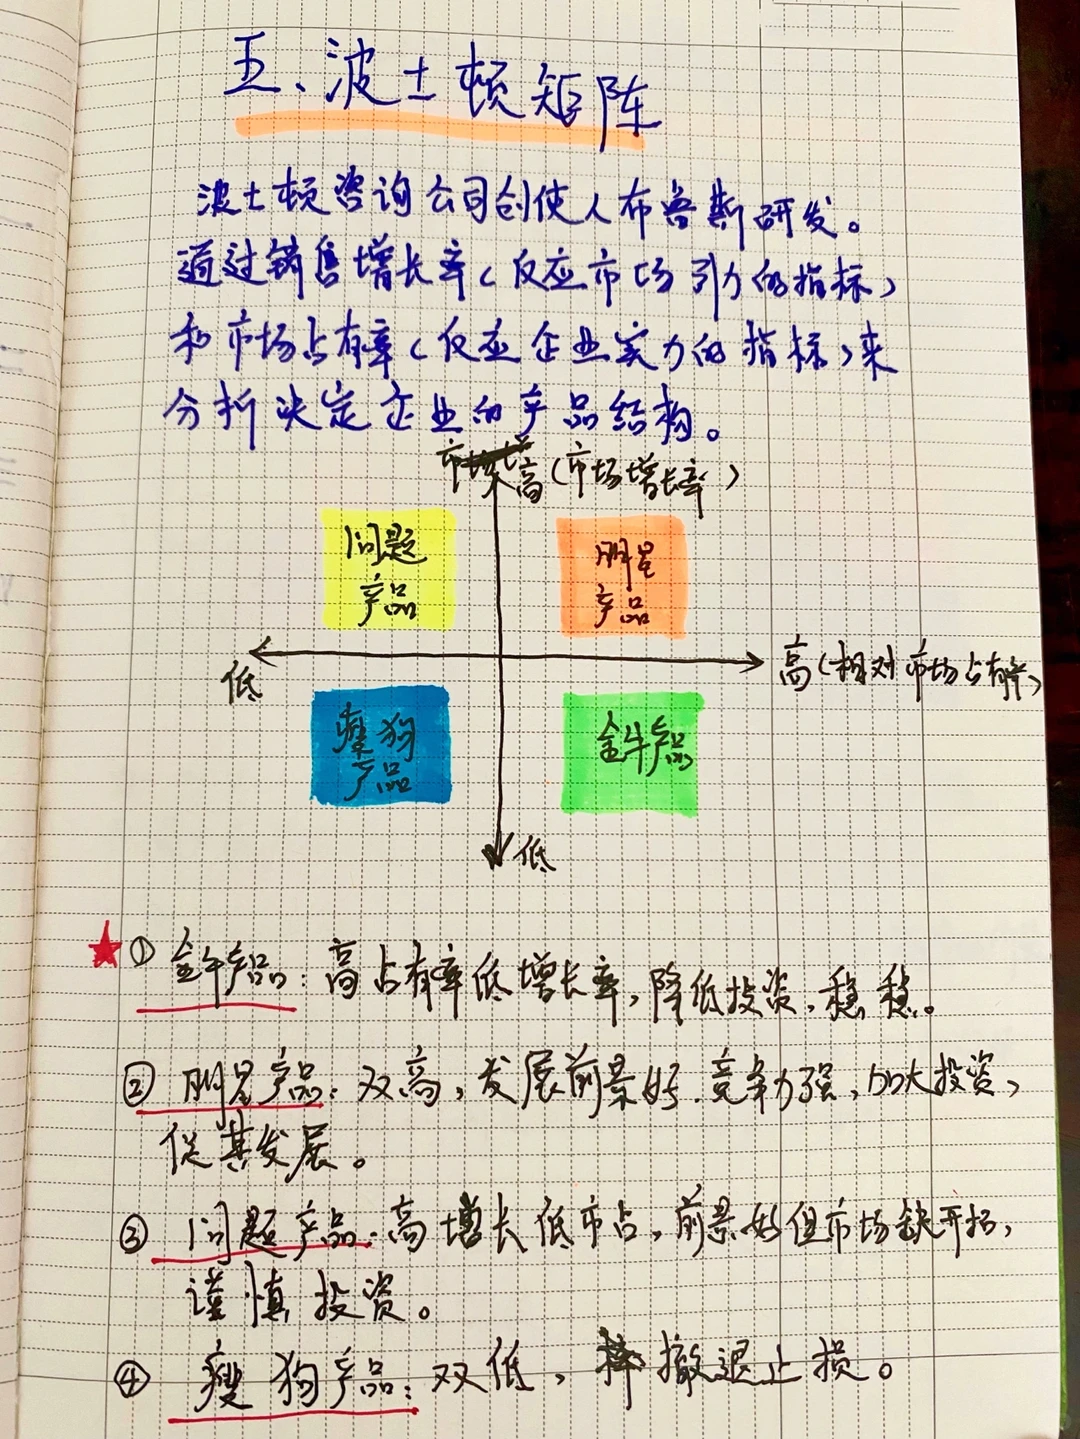 五、波士顿矩阵
波士顿咨询公司创使人布鲁斯研发。
通过销售增长率(反应市场引力的指标)
和市场占有率(反应企业实力的指标)来
分析决定企业的产品结构。
高(市场增长率)
问题
产品
明星
产品
低
高(相对市场占有率)
瘦狗
产品
金牛产品
低
①金牛产品:高占有率低增长率,降低投资,稳稳。
②明星产品:双高,发展前景好.竞争力强,加大投资,
促其发展。
③问题产品:高增长低市占,前景好但市场缺开拓,
谨慎投资。
④瘦狗产品:双低,撤退止损。